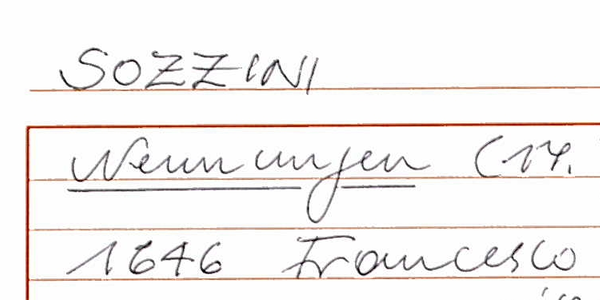 SOZZINI
Nennungen (17.
1646 Francesco